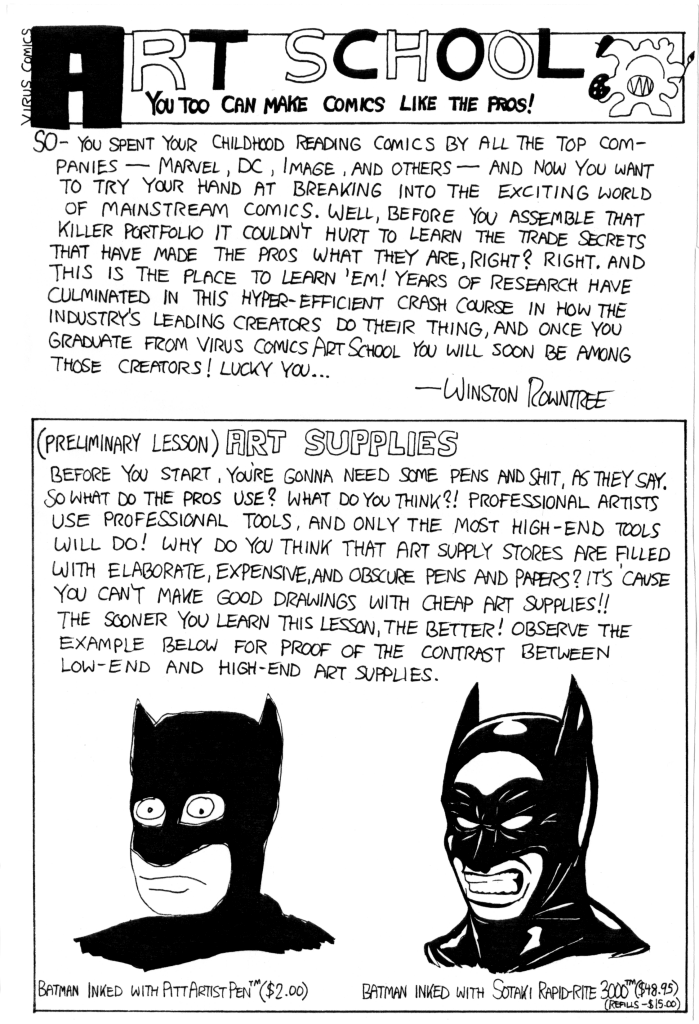 VIRUS COMICS
ART SCHOOL!
YOU TOO CAN MAKE COMICS LIKE THE PROS!
SO- YOU SPENT YOUR CHILDHOOD READING COMICS BY ALL THE TOP COM-
PANIES — MARVEL, DC, IMAGE, AND OTHERS — AND NOW YOU WANT
TO TRY YOUR HAND AT BREAKING INTO THE EXCITING WORLD
OF MAINSTREAM COMICS. WELL, BEFORE YOU ASSEMBLE THAT
KILLER PORTFOLIO IT COULDN'T HURT TO LEARN THE TRADE SECRETS
THAT HAVE MADE THE PROS WHAT THEY ARE, RIGHT? RIGHT. AND
THIS IS THE PLACE TO LEARN 'EM! YEARS OF RESEARCH HAVE
CULMINATED IN THIS HYPER-EFFICIENT CRASH COURSE IN HOW THE
INDUSTRY'S LEADING CREATORS DO THEIR THING, AND ONCE YOU
GRADUATE FROM VIRUS COMICS ART SCHOOL YOU WILL SOON BE AMONG
THOSE CREATORS! LUCKY YOU...
—WINSTON ROWNTREE
(PRELIMINARY LESSON) ART SUPPLIES
BEFORE YOU START, YOU'RE GONNA NEED SOME PENS AND SHIT, AS THEY SAY.
SO WHAT DO THE PROS USE? WHAT DO YOU THINK?! PROFESSIONAL ARTISTS
USE PROFESSIONAL TOOLS, AND ONLY THE MOST HIGH-END TOOLS
WILL DO! WHY DO YOU THINK THAT ART SUPPLY STORES ARE FILLED
WITH ELABORATE, EXPENSIVE, AND OBSCURE PENS AND PAPERS? IT'S 'CAUSE
YOU CAN'T MAKE GOOD DRAWINGS WITH CHEAP ART SUPPLIES!!
THE SOONER YOU LEARN THIS LESSON, THE BETTER! OBSERVE THE
EXAMPLE BELOW FOR PROOF OF THE CONTRAST BETWEEN
LOW-END AND HIGH-END ART SUPPLIES.
BATMAN INKED WITH PITT ARTIST PEN™ ($2.00)
BATMAN INKED WITH SOTAKI RAPID-RITE 3000™ ($48.95)
(REFILLS - $15.00)